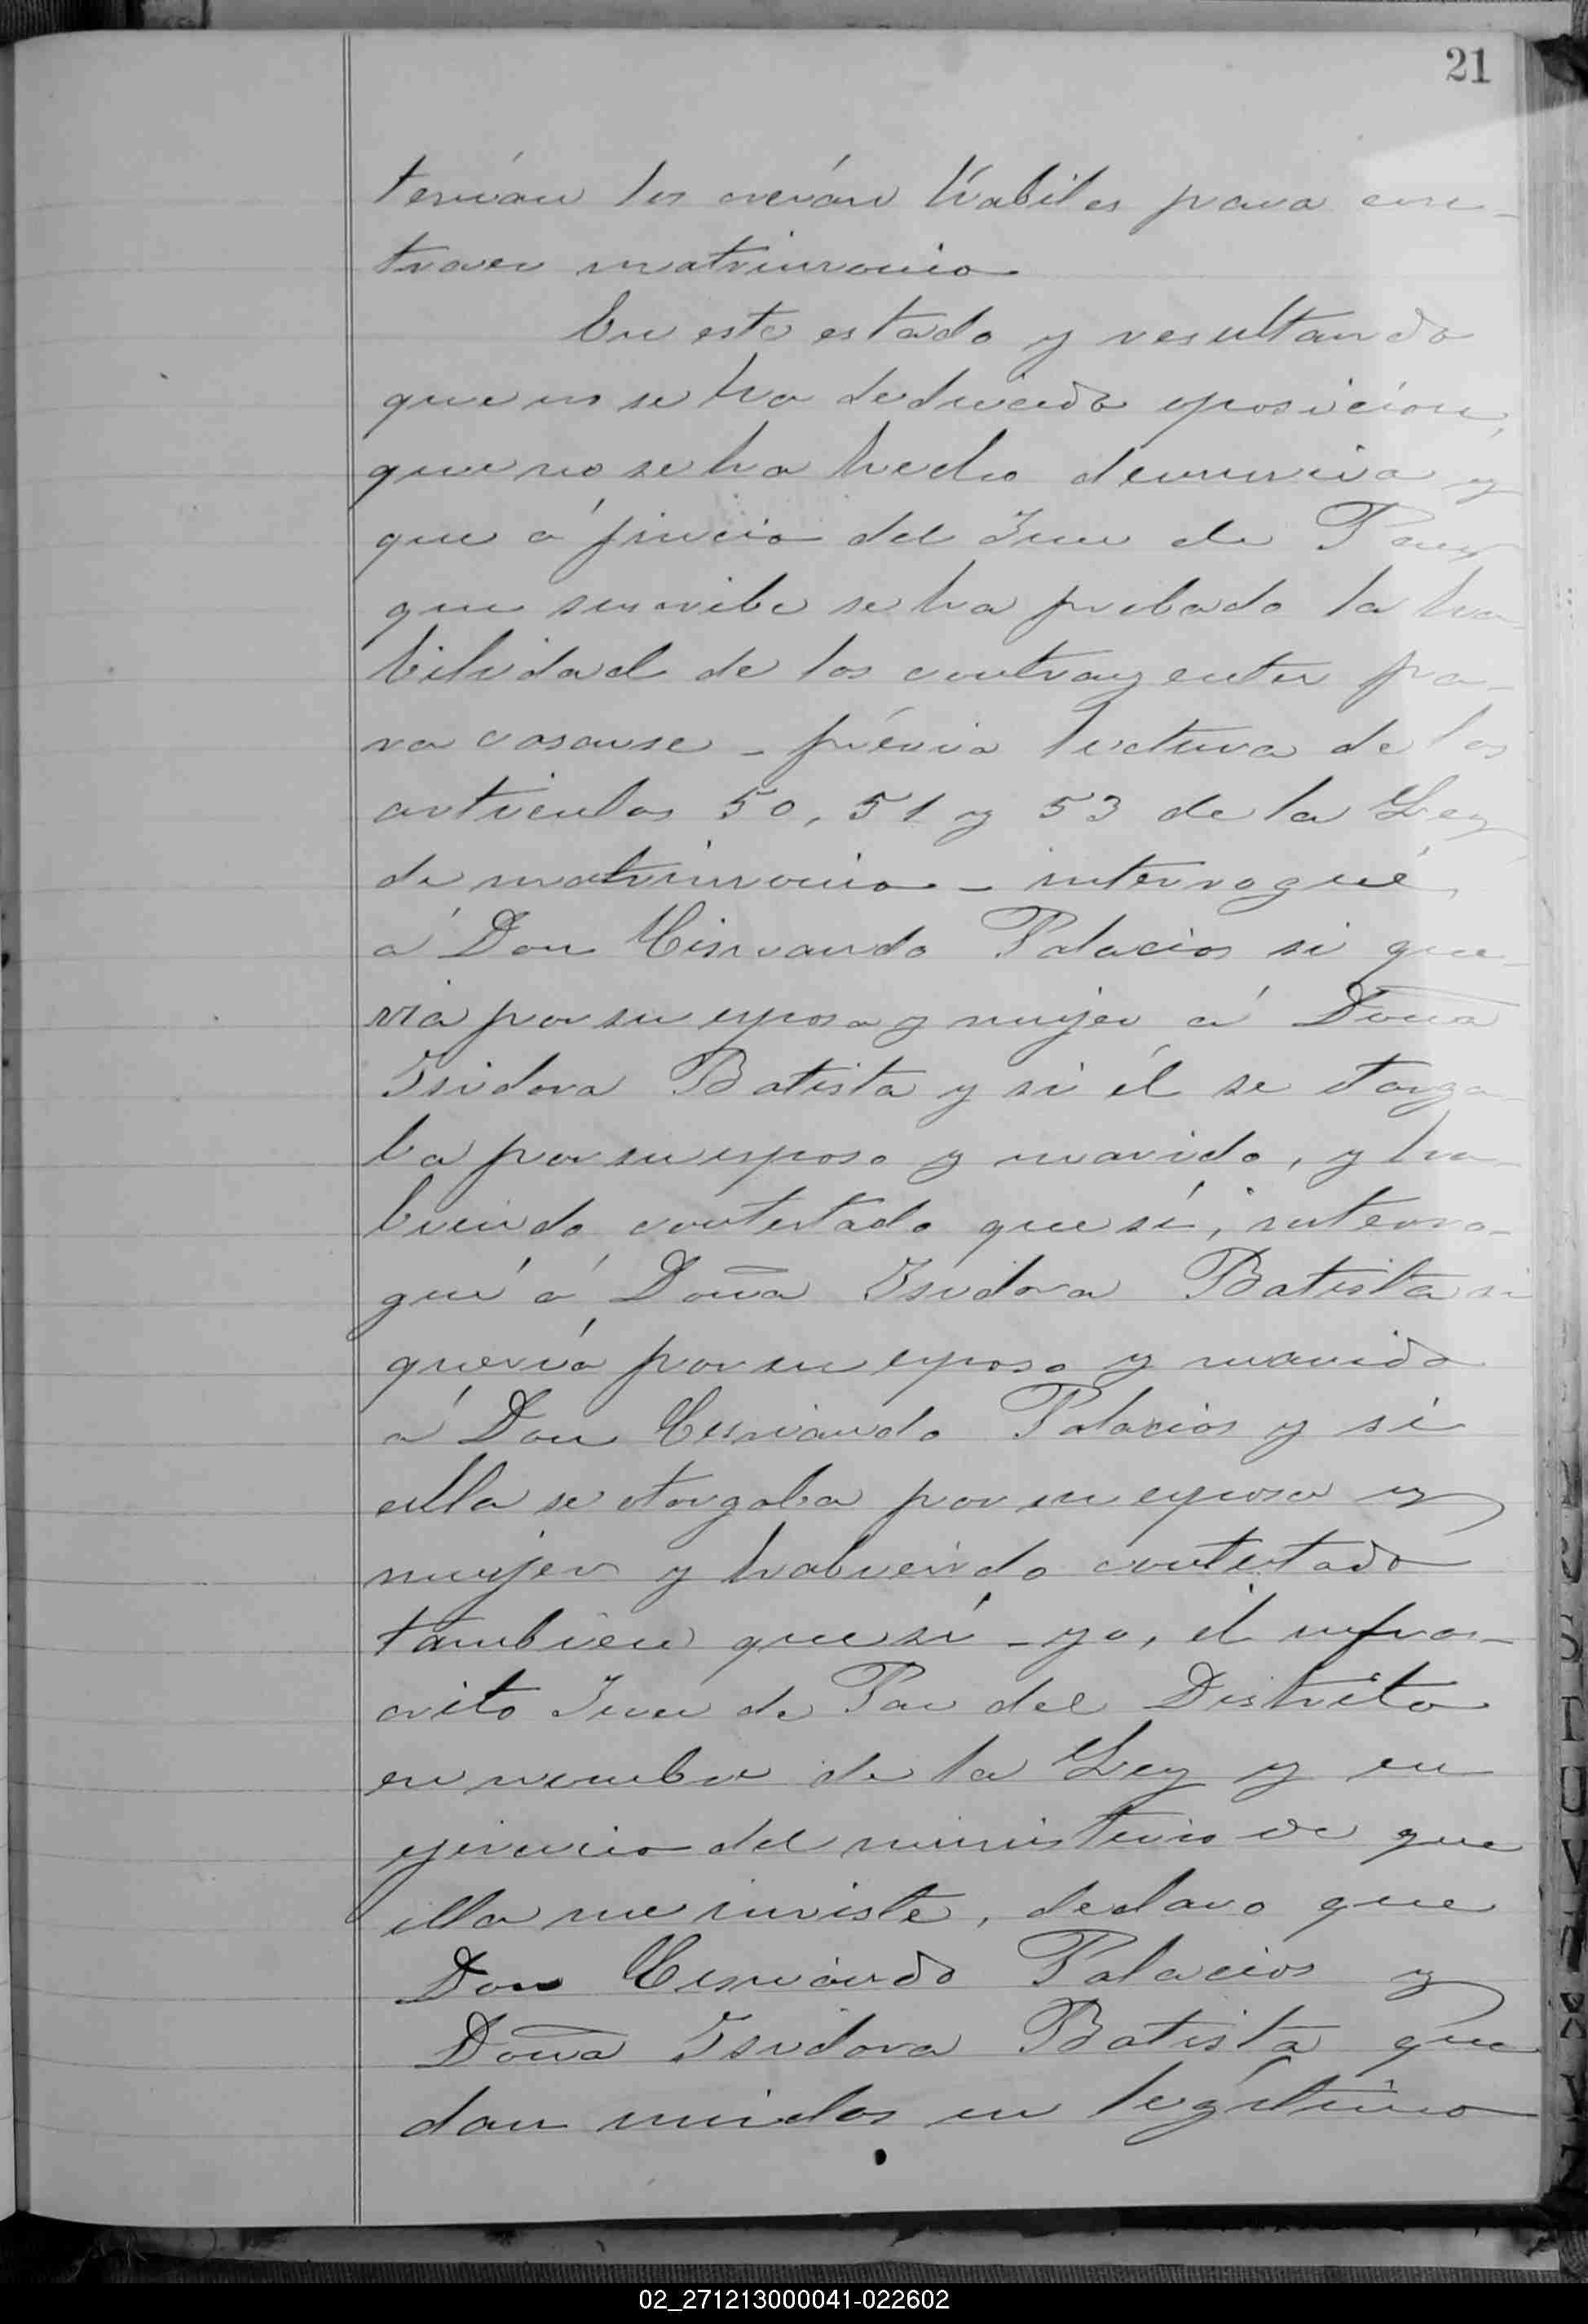 21
tenían los creían hábiles para con-
traer matrimonio.
En este estado y resultando
que no se ha deducido oposición,
que no se ha hecho denuncia y
que á juicio del Juez de Paz
que suscribe se ha probado la ha-
bilidad de los contrayentes pa-
ra casarse - prévia lectura de los
artículos 50, 51 y 53 de la Ley
de matrimonio - interrogué
á Don Palacios si que-
ría por su esposa y mujer á Doña
Isidora Batista y si él se otorga-
ba por su esposo y marido, y ha-
biendo contestado que sí, interro-
gué á Doña Isidora Batista si
quería por su esposo y marido
á Don Palacios y si
ella se otorgaba por su esposa y
mujer y habiendo contestado
tambien que sí - yo, el infras-
crito Juez de Paz del Distrito
en nombre de la Ley y en
ejercicio del ministerio de que
ella me inviste, declaro que
Don Palacios y
Doña Isidora Batista que
dan unidos en legítimo
02_271213000041-022602